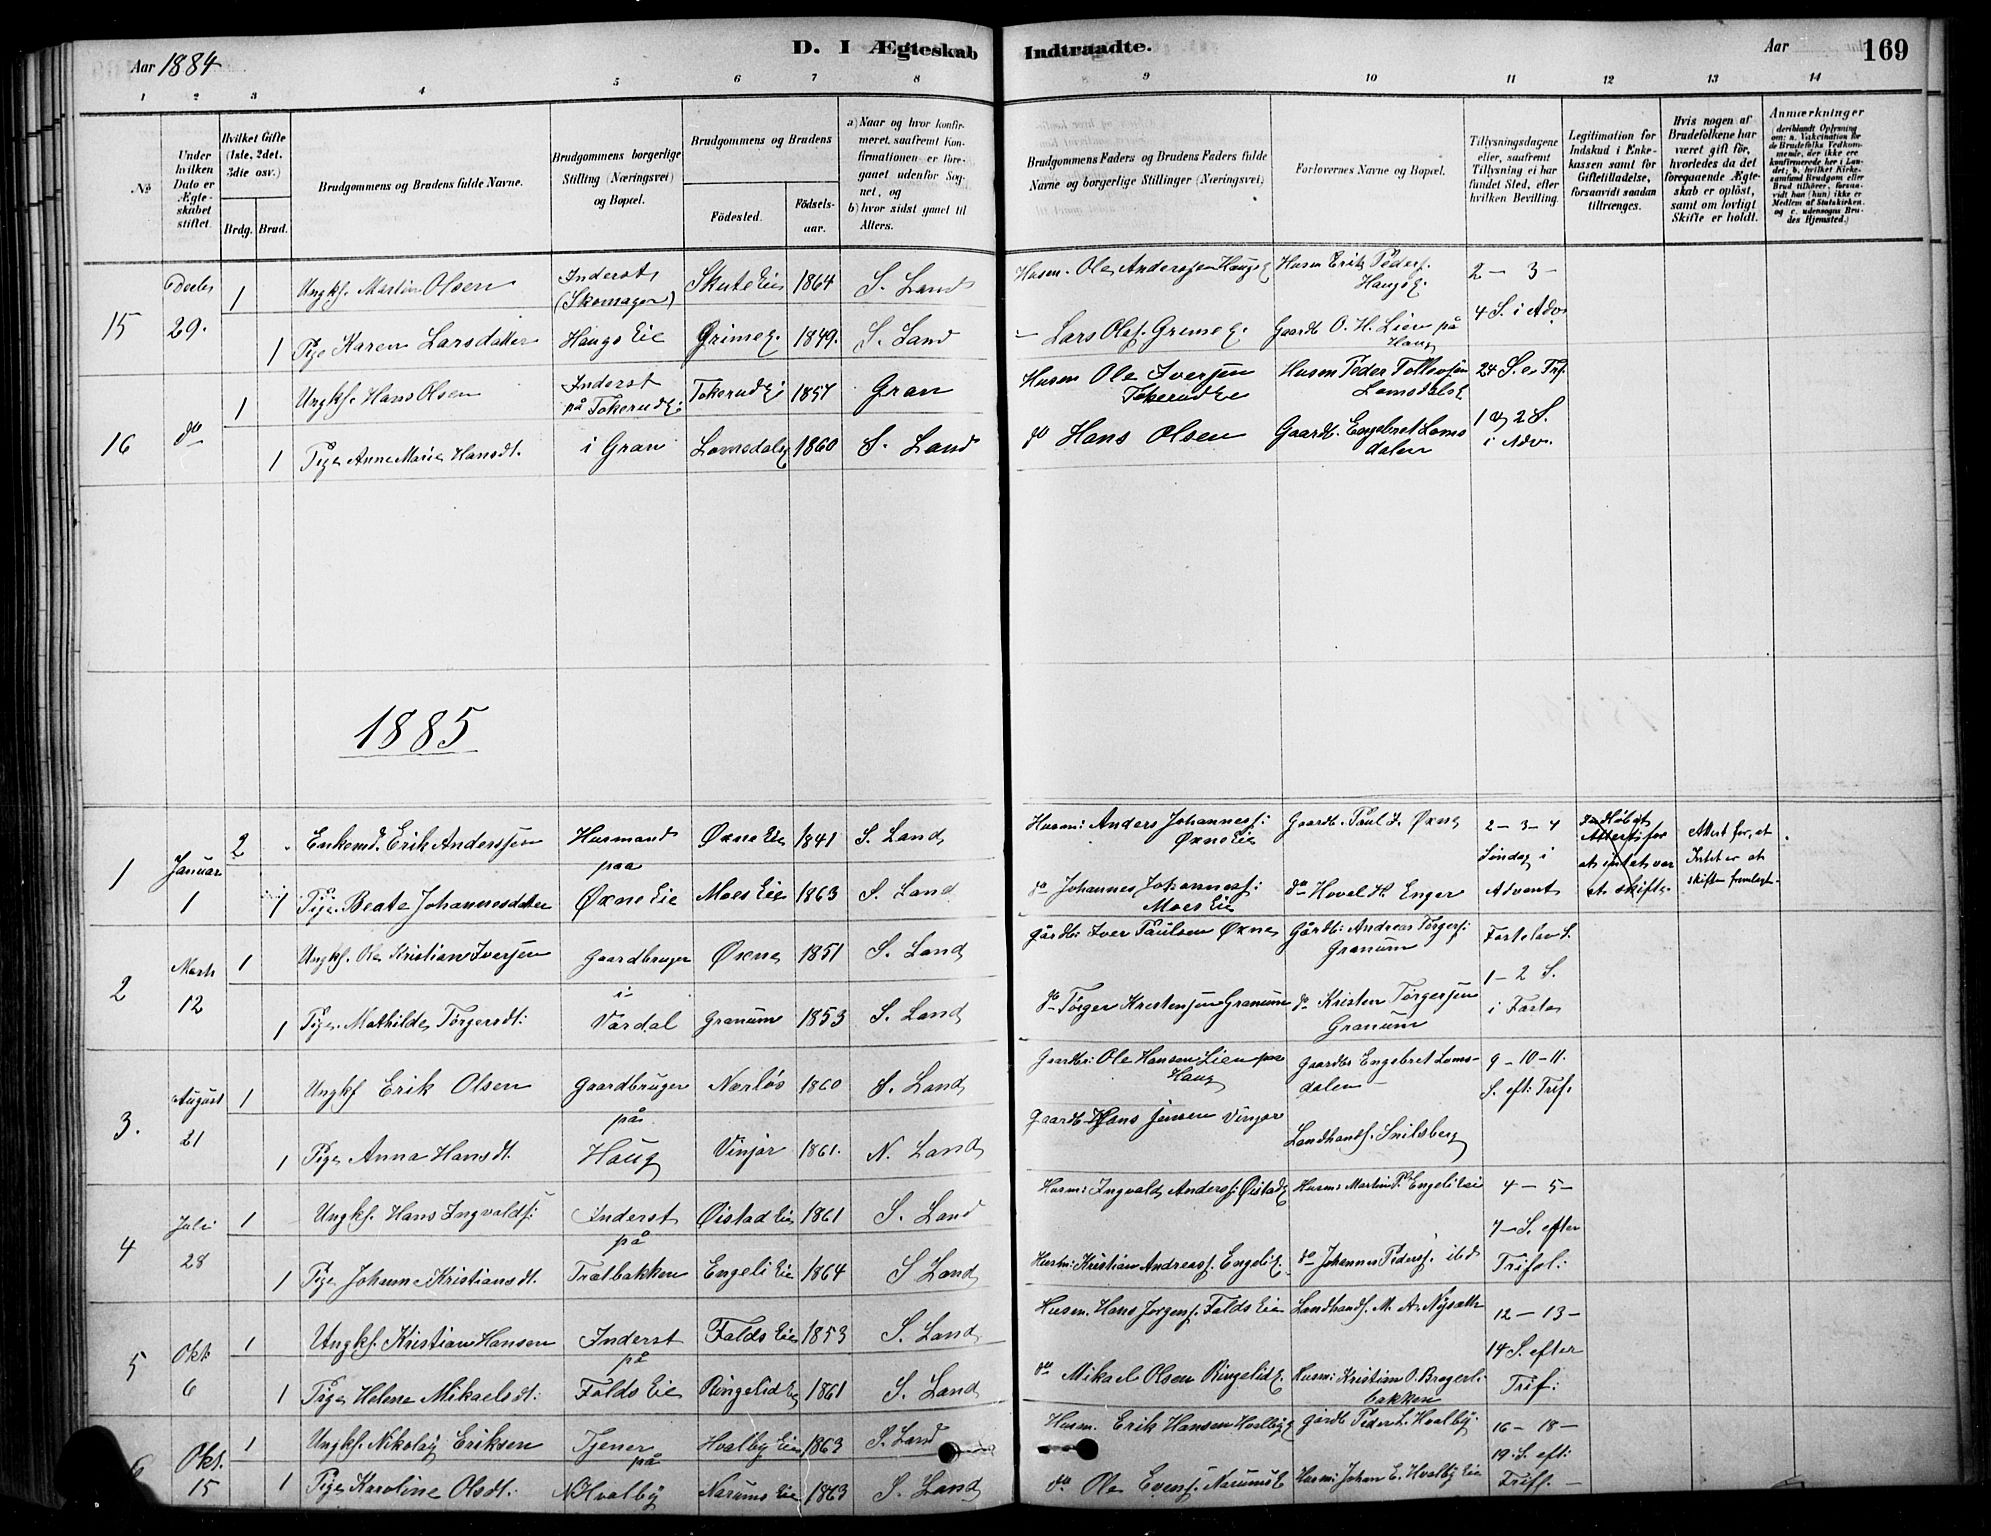 Aar 1884
D. I Ægteskab Indtraadte.
Aar 169
1 2 3 4 5 6 7 8 9 10 11 12 13 14
No
Under hvilken Dato er Ægteskabet stiftet.
Hvilket Gifte (1ste, 2det, 3die osv.)
Brdg. Brud.
Brudgommens og Brudens fulde Navne.
Brudgommens borgerlige Stilling (Næringsvei) og Bopæl.
Brudgommens og Brudens
Fødested.
Fødselsaar.
a) Naar og hvor konfirmeret, saafremt Konfirmationen er foregaaet udenfor Sognet, og
b) hvor sidst gaaet til Alters.
Brudgommens Faders og Brudens Faders fulde Navne og borgerlige Stillinger (Næringsvei)
Forlovernes Navne og Bopæl.
Tillysningsdagene eller, saafremt Tillysning ei har fundet Sted, efter hvilken Bevilling.
Legitimation for Indskud i Enkekassen samt for Giftetilladelse, forsaavidt saadan tiltrænges.
Hvis nogen af Brudefolkene har været gift før, hvorledes da det foregaaende Ægteskab er opløst, samt om lovligt Skifte er holdt.
Anmærkninger (deriblandt Oplysning om: a. Vakcination for de Brudefolks Vedkommende, der ikke ere konfirmerede her i Landet; b. hvilket Kirkesamfund Brudgom eller Brud tilhører, forsaavidt han (hun) ikke er Medlem af Statskirken, og c. udensogns Brudes Hjemsted.)
15 Decbr 29. 1 Ungkf. Martin Olsen Inderst (Skomager) Skute Eie 1864 S. Land Husm. Ole Anderssen Haugs E. Husm Erik Peders. Haugs E. 2 - 3 -
1 Pige Karen Larsdatter Haugs Eie Grime E. 1849. S. Land - Lars Ols. Grime E. Gaardb. O. H. Lien på Haug 4 S. i Adv.
16 do 1 Ungkf. Hans Olsen Inderst på Tokerud E. Tokerud E. 1857 Gran Husm Ole Iversen Tokerud Eie Husm Peder Tollevsen Lomsdals E 24 S. e. Trf.
1 Pige Anne Marie Hansdt. i Gran Lomsdals E 1860 S. Land do Hans Olsen Gaardb. Engebret Lomsdalen 1 og 2 S. i Adv.
1885
1 Januar 1 2 Enkemd. Erik Anderssen Husmand paa Øxne Eie 1841 S. Land Husm: Anders Johanness: Øxne Eie Gaardb. Paul I. Øxne 2 - 3 - 4 Søndag i Attest for, at Intet er at skifte fremlagt.
1 Pige Beate Johannesdatter Øxne Eie Moes Eie 1863 S. Land do Johannes Johanness: Moes Eie do Hovel H. Enger Advent
2 Marts 12 1 Ungkf. Ole Kristian Iversen Gaardbruger i Øxne 1851 S. Land Gårdb: Iver Paulsen Øxne Gårdb: Andreas Torgers: Granum Fastelav S.
1 Pige Mathilde Torgersdt: Vardal Granum 1853 S. Land do Torger Kristensen Granum do Kristen Torgersen Granum 1 - 2 S. i Faste
3. August 21 1 Ungkf Erik Olsen Gaardbruger på Nerløs 1860 S. Land Gaardb: Ole Hansen Lien paa Haug Gaardbr Engebret Lomsdalen 9 - 10 - 11. S. eft: Trif.
1 Pige Anna Hansdt. Haug Vinjar 1861. N. Land Gaardb Hans Jensen Vinjar Landhandl. Snilsberg
4 Juli 28 1 Ungkf. Hans Ingvalds: Inderst på Øistad Eie 1861 S. Land Husm: Ingvald Anders: Øistad E Husm: Martin P. Engeli Eie 4 - 5 -
1 Pige Johanne Kristiansdt. Trætbakken Engeli Eie 1864 S Land Husm: Kristian Andreass. Engeli E. do Johannes Peders. ibd 7 - S. efter Trifol:
5 Okt 6 1 Ungkf. Kristian Hansen Inderst på Falds Eie 1853 S. Land Husm. Hans Jørgens. Falds Eie Landhandl. M. A. Nysæth 12 - 13 -
1 Pige Helene Mikaelsdt: Falds Eie Ringelid E 1861 S. Land do Mikael Olsen Ringelid E. Husm: Kristian O. Bragerlibakken 14 S. efter Trif:
6 Okt. 15 1 Ungkf. Nikolaij Eriksen Tjener på Hvalby Eie 1863 S. Land Husm. Erik Hansen Hvalby E Gårdb Peder L. Hvalby. 16 - 18 -
1 Pige Karoline Olsdt: N Hvalby Narums Eie 1863 S. Land do Ole Evens. Narums E Husm: Johan E. Hvalby Eie 19. S. eft: Triff. -